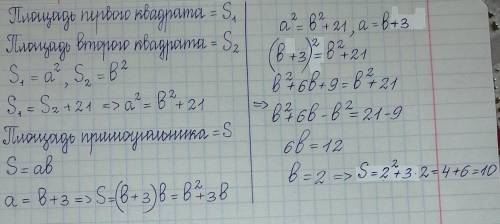 Площадь первого квадрата = S₁
Площадь второго квадрата = S₂
S₁ = a², S₂ = b²
S₁ = S₂ + 21 => a² = b² + 21
Площадь прямоугольника = S
S = ab
a = b + 3 => S = (b + 3)b = b² + 3b
a² = b² + 21, a = b + 3
(b + 3)² = b² + 21
b² + 6b + 9 = b² + 21
=> b² + 6b - b² = 21 - 9
6b = 12
b = 2 => S = 2² + 3 · 2 = 4 + 6 = 10